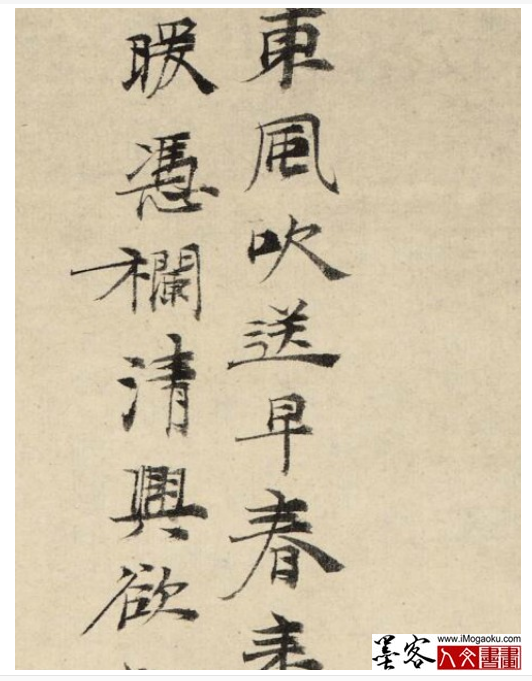 東風吹送早春來
暖憑欄清興欲
墨客
www.iMogaoku.com
人文書畫